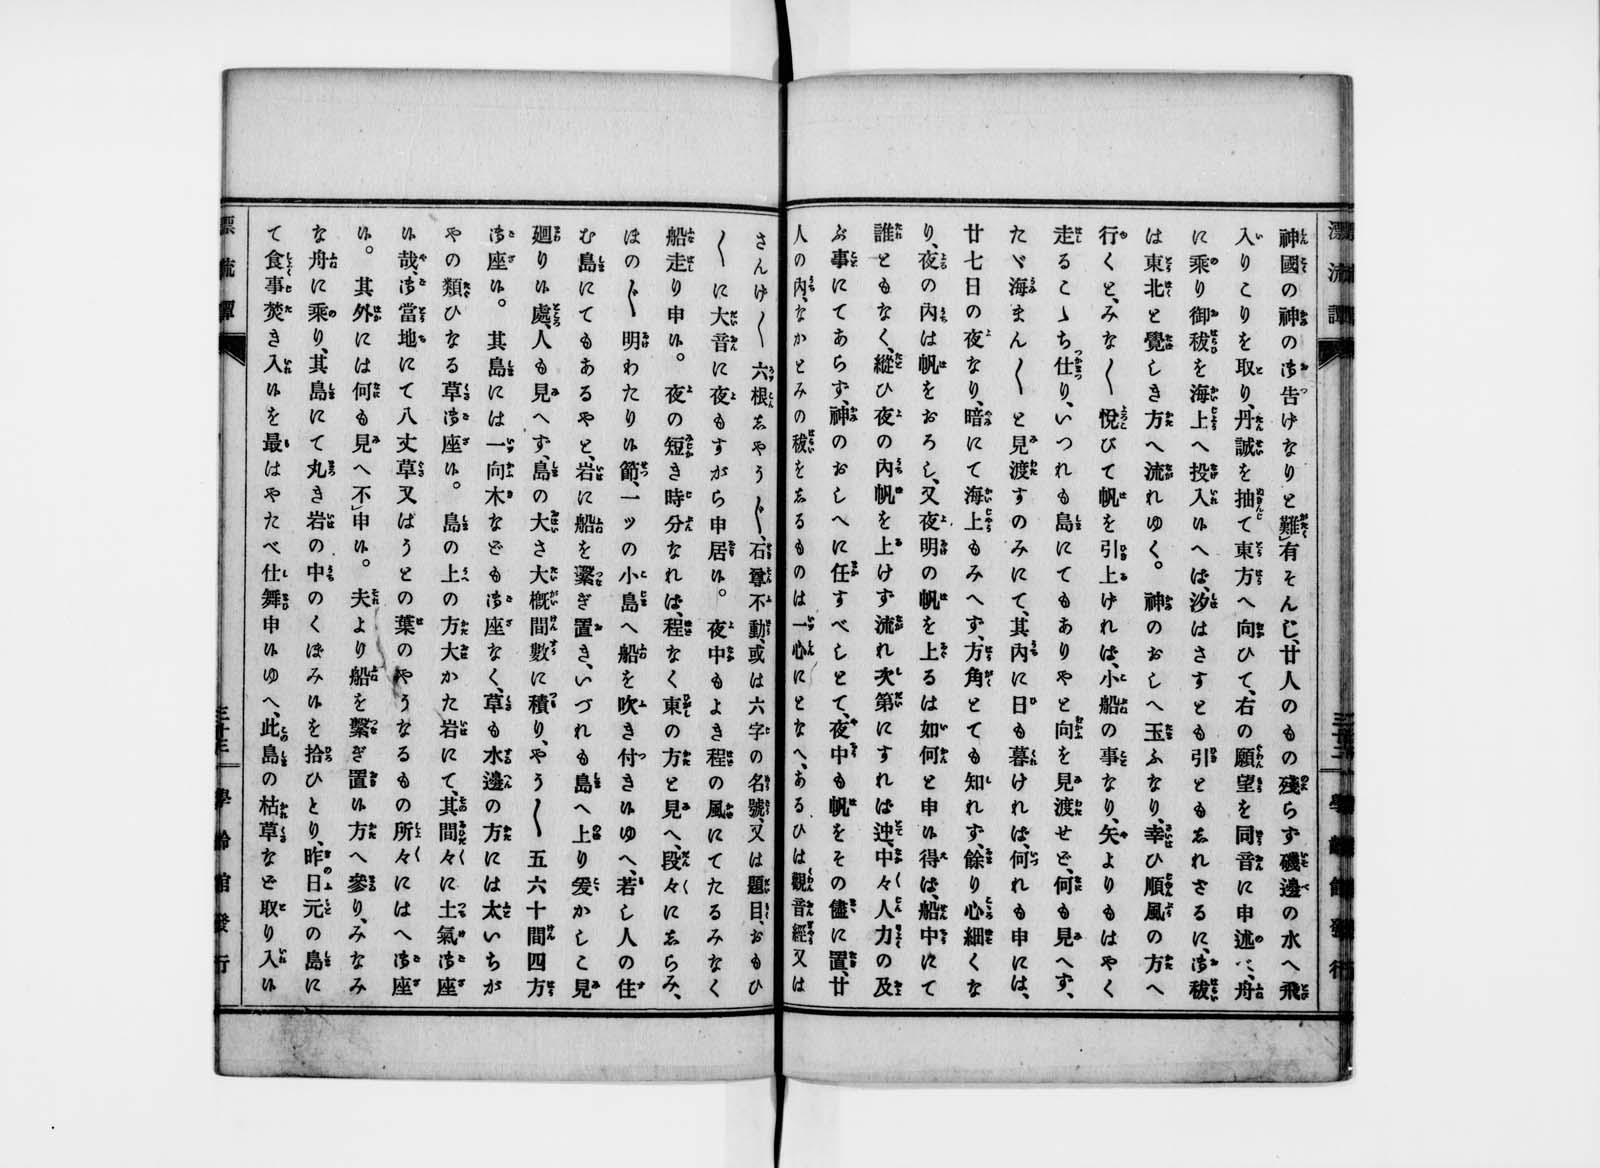 漂流譚
神國の神の御告げなりと難有そんじ、廿人のもの殘らず磯邊の水へ飛
入りこりを取り、丹誠を抽て東方へ向ひて、右の願望を同音に申述べ、舟
に乘り御祓を海上へ投入いへば、汐はさすとも引ともゑれさるに、御祓
は東北と覺しき方へ流れゆく。神のおしへ玉ふなり、幸ひ順風の方へ
行くと、みな〳〵悅びて帆を引上げれば、小船の事なり、矢よりもはやく
走るこゝち仕り、いつれも島にてもありやと向を見渡せど、何も見へず、
たゞ海まん〳〵と見渡すのみにて、其內に日も暮ければ、何れも申には、
廿七日の夜なり、暗にて海上もみへず、方角とても知れず、餘り心細くな
り、夜の內は帆をおろし、又夜明の帆を上るは如何と申い得ば、船中にて
誰ともなく、縱ひ夜の內帆を上けず流れ次第にすれば迚、中々人力の及
ぶ事にてあらず、神のおしへに任すべしとて、夜中も帆をその儘に置、廿
人の內、なかとみの祓をゑるものは一心にとなへ、あるひは觀音經又は
さんげ〳〵六根ゑやう〴〵、石尊不動、或は六字の名號、又は題目、おもひ
〳〵に大音に夜もすがら申居い。夜中もよき程の風にてたるみなく
船走り申い。夜の短き時分なれば、程なく東の方と見へ、段々にゑらみ、
ほの〴〵明わたりい節、一ッの小島へ船を吹き付きいゆへ、若し人の住
む島にてもあるやと、岩に船を繫ぎ置き、いづれも島へ上り爰かしこ見
廻りい處、人も見へず、島の大さ大槪間數に積り、やう〳〵五六十間四方
御座い。其島には一向木なども御座なく、草も水邊の方には太いちが
やの類ひなる草御座い。島の上の方大かた岩にて、其間々に土氣御座
い哉、御當地にて八丈草又ばうとの葉のやうなるもの所々にはへ御座
い。其外には何も見へ不申い。夫より船を繫ぎ置い方へ參り、みなみ
な舟に乘り、其島にて丸き岩の中のくぼみいを拾ひとり、昨日元の島に
て食事焚き入いを最はやたべ仕舞申いゆへ、此島の枯草など取り入い
漂流譚
三十三
學齡館發行